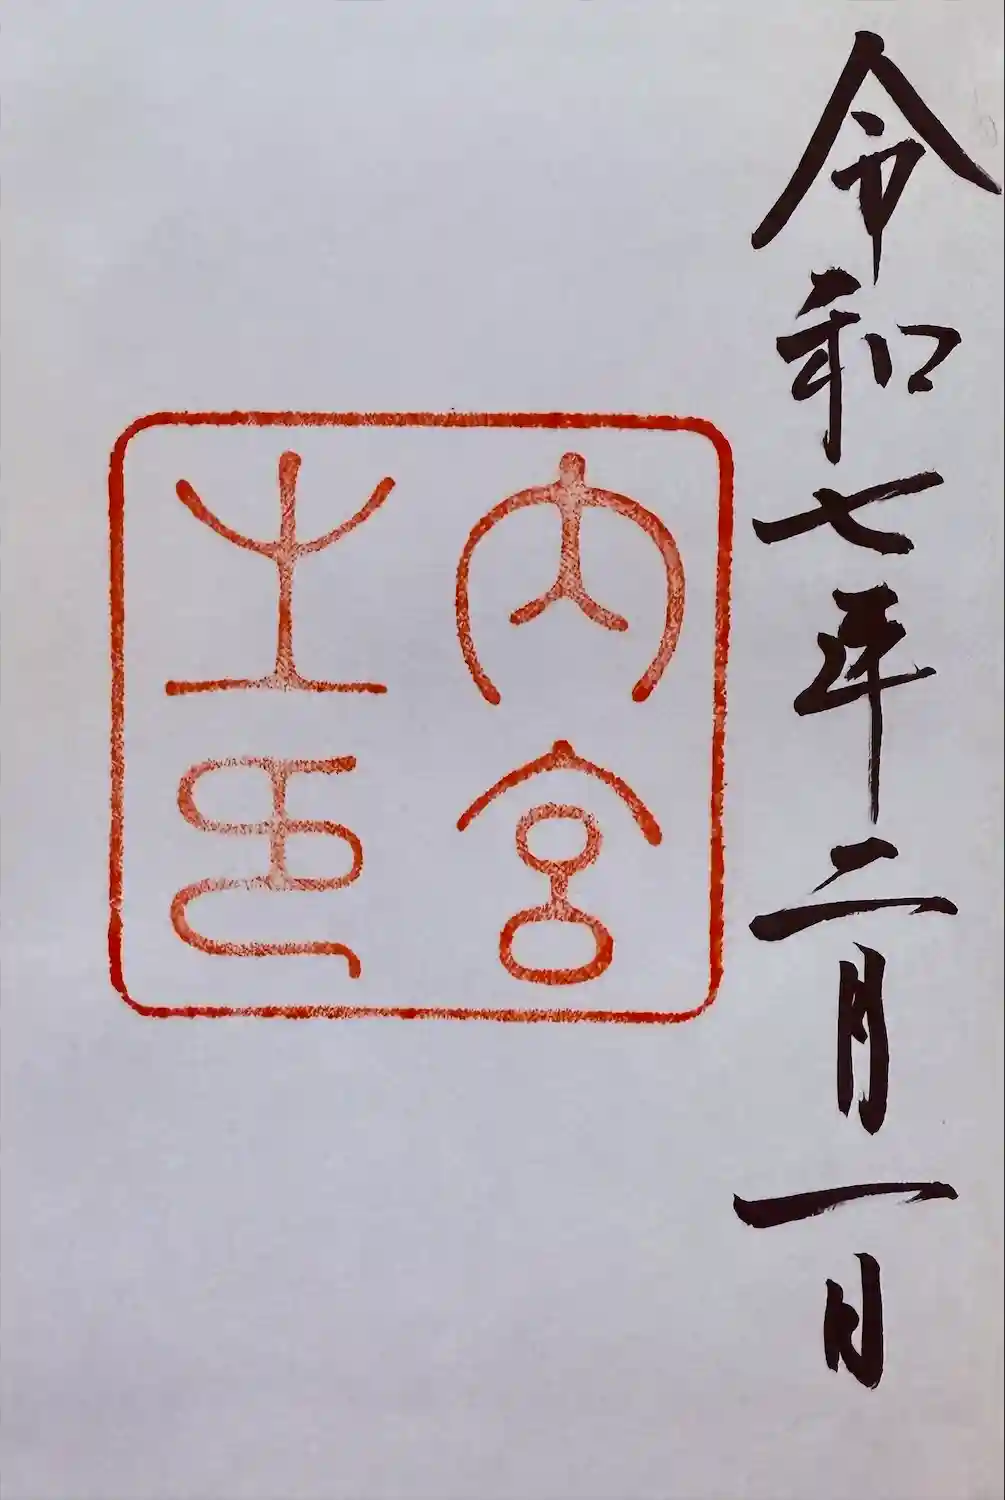 令和七年二月一日
内宮
之印